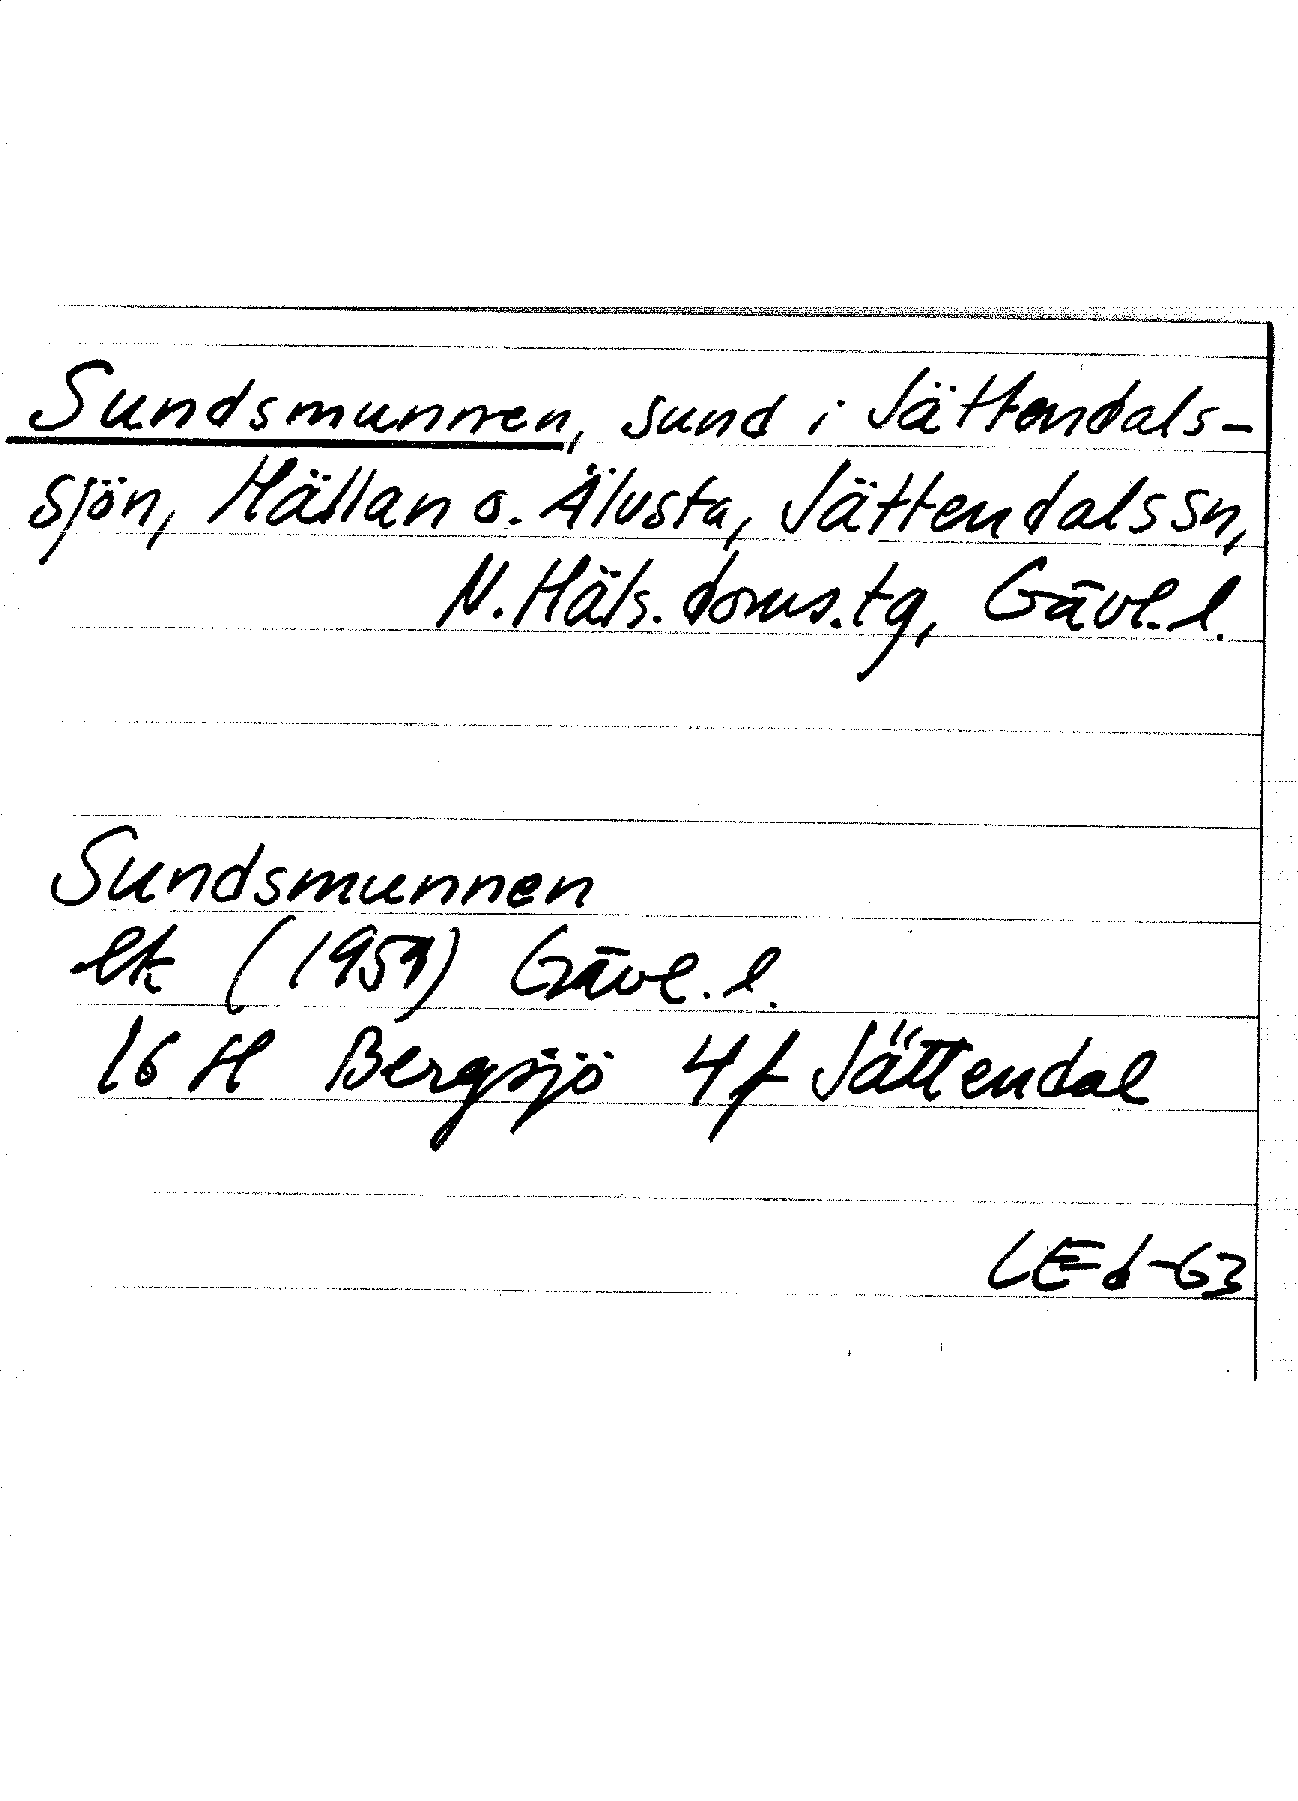 Sundsmunnen, sund i Jättendals-
sjön, Hällan o. Älvsta, Jättendals sn,
N. Häls. doms. tg, Gävl. l.
Sundsmunnen
ek (1959) Gävl. l.
16 H Bergsjö 4f Jättendal
LEd-63